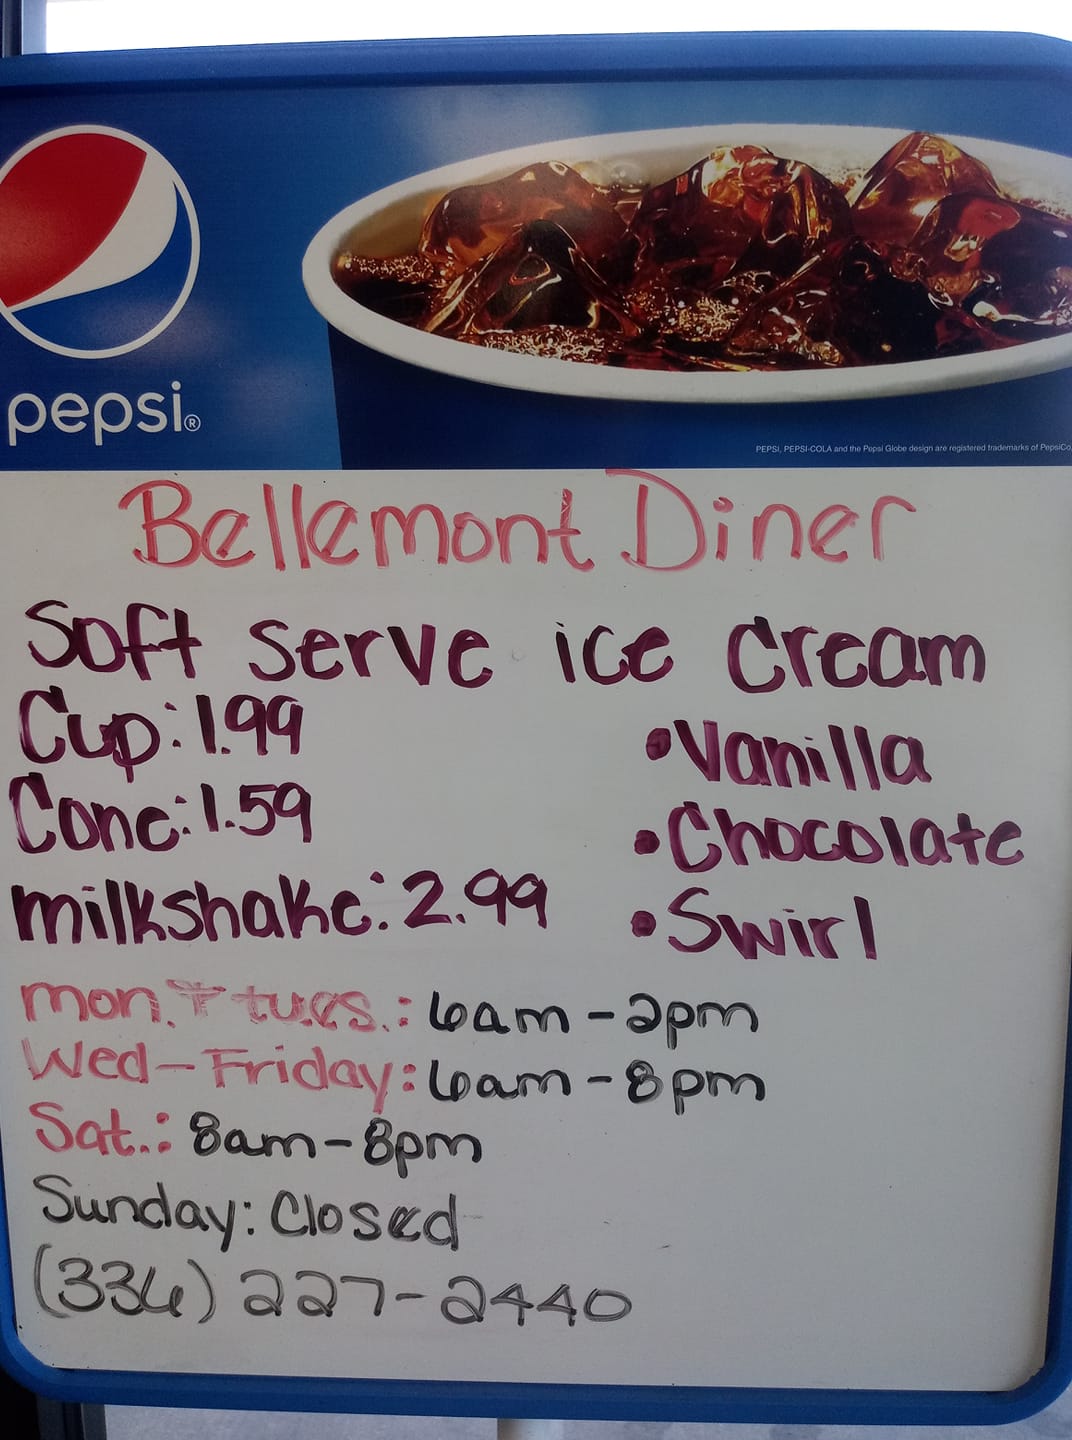 pepsi®
PEPSI, PEPSI-COLA and the Pepsi Globe design are registered trademarks of PepsiCo,
Bellemont Diner
Soft serve ice cream
Cup: 1.99
Cone: 1.59
milkshake: 2.99
• Vanilla
• Chocolate
• Swirl
mon. + tues.: 6am - 2pm
Wed - Friday: 6am - 8pm
Sat.: 8am - 8pm
Sunday: Closed
(336) 227-2440